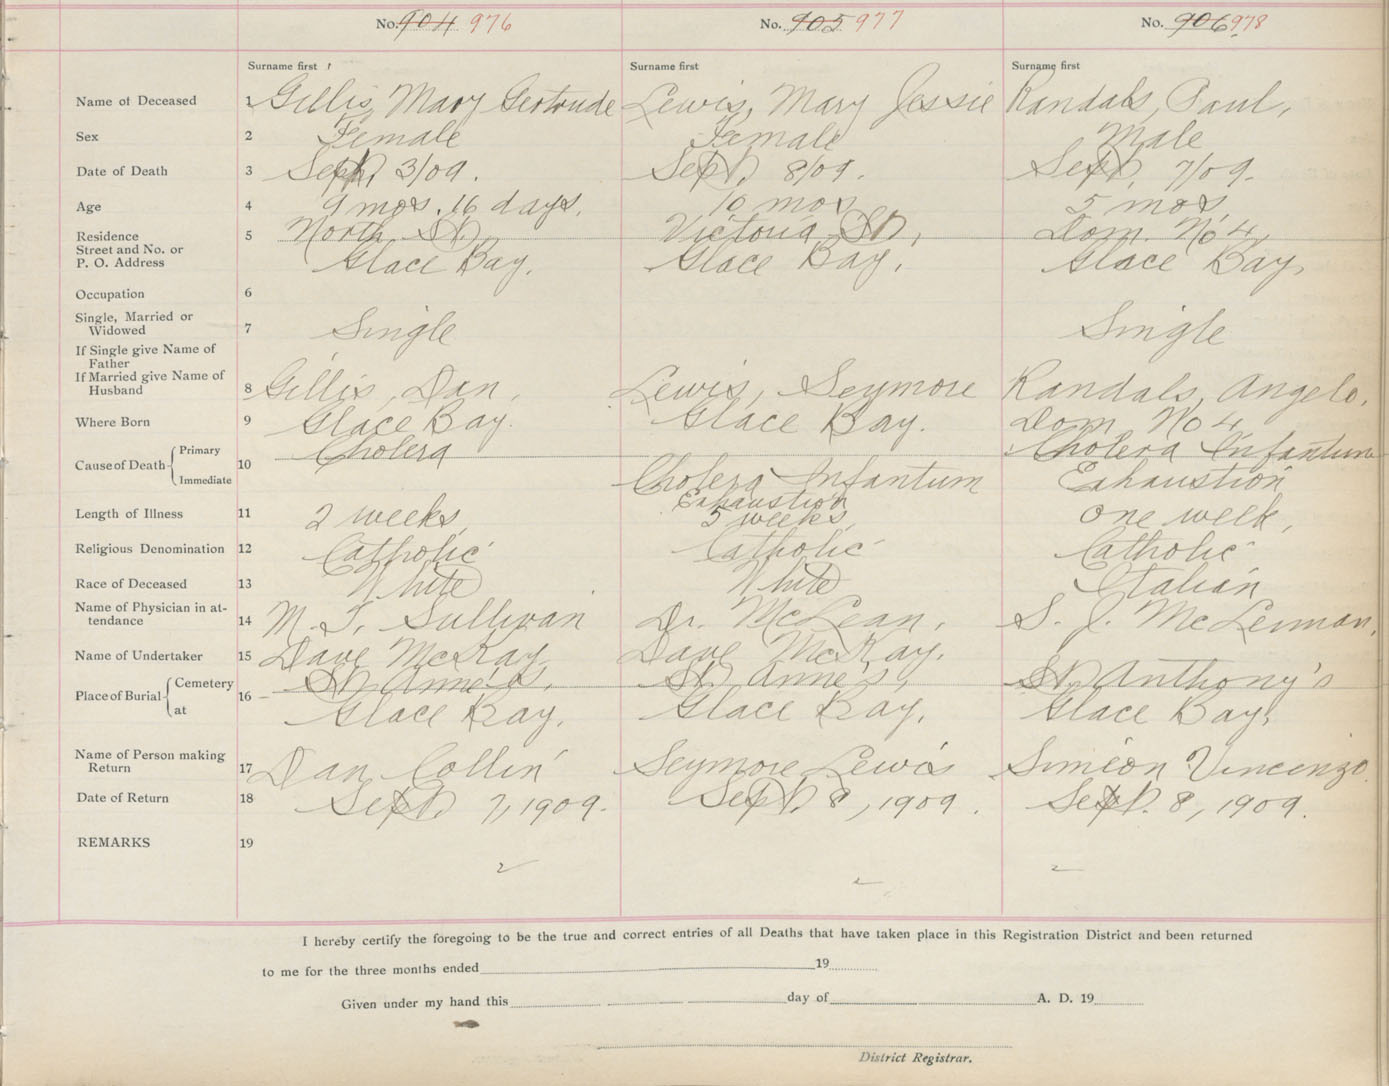 No. 904 976 No. 905 977 No. 906 978
Surname first Surname first Surname first
Name of Deceased 1 Gillis, Mary Gertrude Lewis, Mary Jessie Randals, Paul,
Sex 2 Female Female Male
Date of Death 3 Sept. 3/09. Sept. 8/09. Sept. 7/09.
Age 4 9 mos. 16 days. 10 mos 5 mos
Residence 5 North St. Victoria St, Dom. No 4,
Street and No. or
P. O. Address Glace Bay. Glace Bay. Glace Bay,
Occupation 6
Single, Married or
Widowed 7 Single Single
If Single give Name of
Father
If Married give Name of
Husband 8 Gillis, Dan, Lewis, Seymore Randals, Angelo.
Where Born 9 Glace Bay. Glace Bay. Dom No 4
Cause of Death Primary 10 Cholera Cholera Infantum
Immediate Cholera Infantum Exhaustion
Exhaustion
Length of Illness 11 2 weeks, 5 weeks, one week,
Religious Denomination 12 Catholic Catholic Catholic
Race of Deceased 13 White White Italian
Name of Physician in at-
tendance 14 M. T. Sullivan Dr. McLean, S. J. McLennan,
Name of Undertaker 15 Dave McKay Dave McKay.
Place of Burial Cemetery 16 St Anne's, St Anne's, St. Anthony's
at Glace Bay. Glace Bay, Glace Bay,
Name of Person making
Return 17 Dan Collin Seymore Lewis Simeon Vincenzo
Date of Return 18 Sept. 7, 1909. Sept. 8, 1909. Sept. 8, 1909.
REMARKS 19
I hereby certify the foregoing to be the true and correct entries of all Deaths that have taken place in this Registration District and been returned
to me for the three months ended 19
Given under my hand this day of A. D. 19
District Registrar.